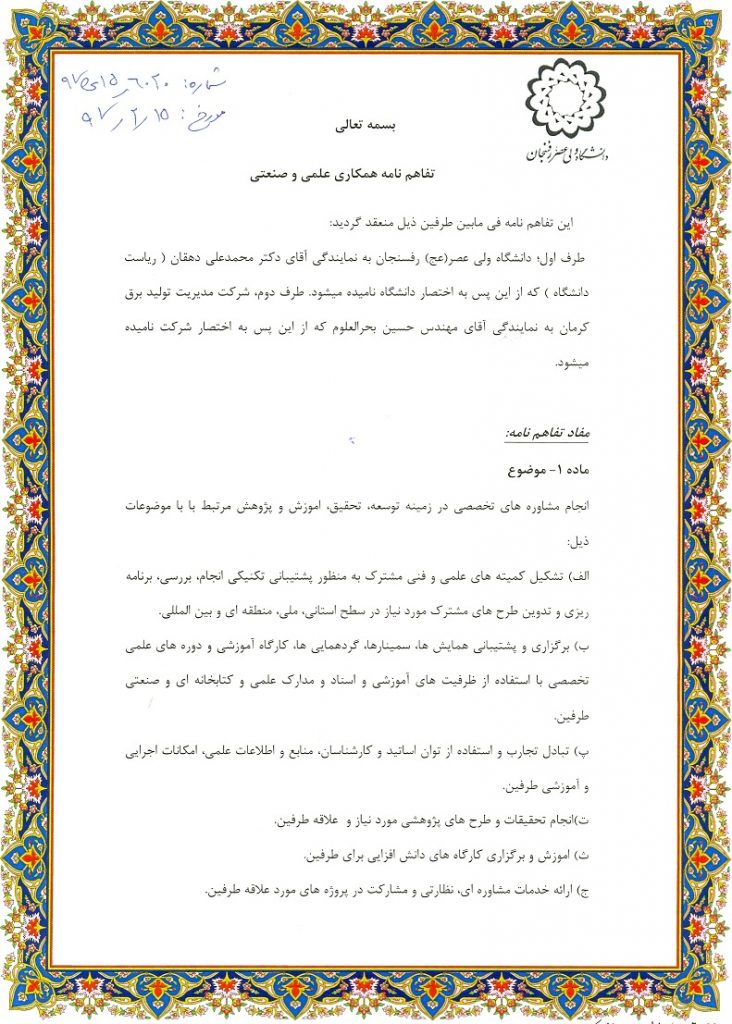 شماره: ۶۰۲۰
مورخ: ۹۷/۲/۱۵
دانشگاه ولی عصر رفسنجان
بسمه تعالی
تفاهم نامه همکاری علمی و صنعتی
این تفاهم نامه فی مابین طرفین ذیل منعقد گردید:
طرف اول؛ دانشگاه ولی عصر(عج) رفسنجان به نمایندگی آقای دکتر محمدعلی دهقان ( ریاست
دانشگاه ) که از این پس به اختصار دانشگاه نامیده میشود. طرف دوم، شرکت مدیریت تولید برق
کرمان به نمایندگی آقای مهندس حسین بحرالعلوم که از این پس به اختصار شرکت نامیده
میشود.
مفاد تفاهم نامه:
ماده ۱- موضوع
انجام مشاوره های تخصصی در زمینه توسعه، تحقیق، اموزش و پژوهش مرتبط با با موضوعات
ذیل:
الف) تشکیل کمیته های علمی و فنی مشترک به منظور پشتیبانی تکنیکی انجام، بررسی، برنامه
ریزی و تدوین طرح های مشترک مورد نیاز در سطح استانی، ملی، منطقه ای و بین المللی.
ب) برگزاری و پشتیبانی همایش ها، سمینارها، گردهمایی ها، کارگاه آموزشی و دوره های علمی
تخصصی با استفاده از ظرفیت های آموزشی و اسناد و مدارک علمی و کتابخانه ای و صنعتی
طرفین.
پ) تبادل تجارب و استفاده از توان اساتید و کارشناسان، منابع و اطلاعات علمی، امکانات اجرایی
و آموزشی طرفین.
ت)انجام تحقیقات و طرح های پژوهشی مورد نیاز و علاقه طرفین.
ث) اموزش و برگزاری کارگاه های دانش افزایی برای طرفین.
ج) ارائه خدمات مشاوره ای، نظارتی و مشارکت در پروژه های مورد علاقه طرفین.